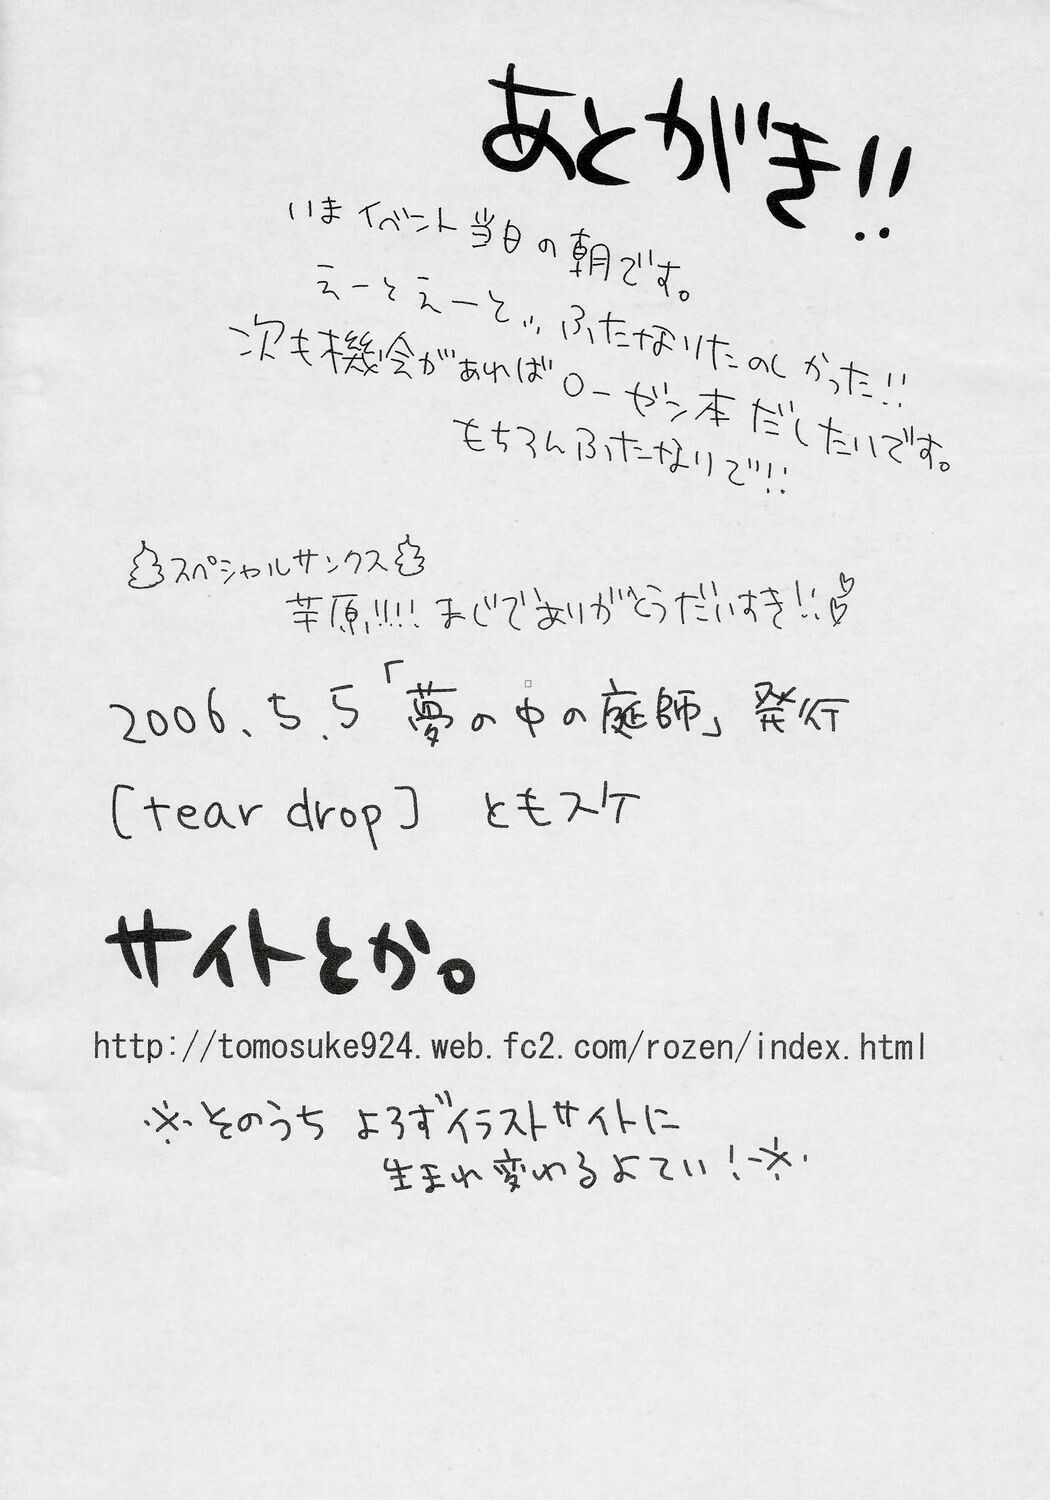 あとがき!!
いまイベント当日の朝です。
えーとえーと、、ふたなりたのしかった!!
次も機会があればローゼン本だしたいです。
もちろんふたなりで!!
スペシャルサンクス
芋原!!!!! まじでありがとうだいすき!!
2006.5.5「夢の中の庭師」発行
[tear drop] ともスケ
サイトとか。
http://tomosuke924.web.fc2.com/rozen/index.html
※そのうち よろずイラストサイトに
生まれ変わるよてい!※